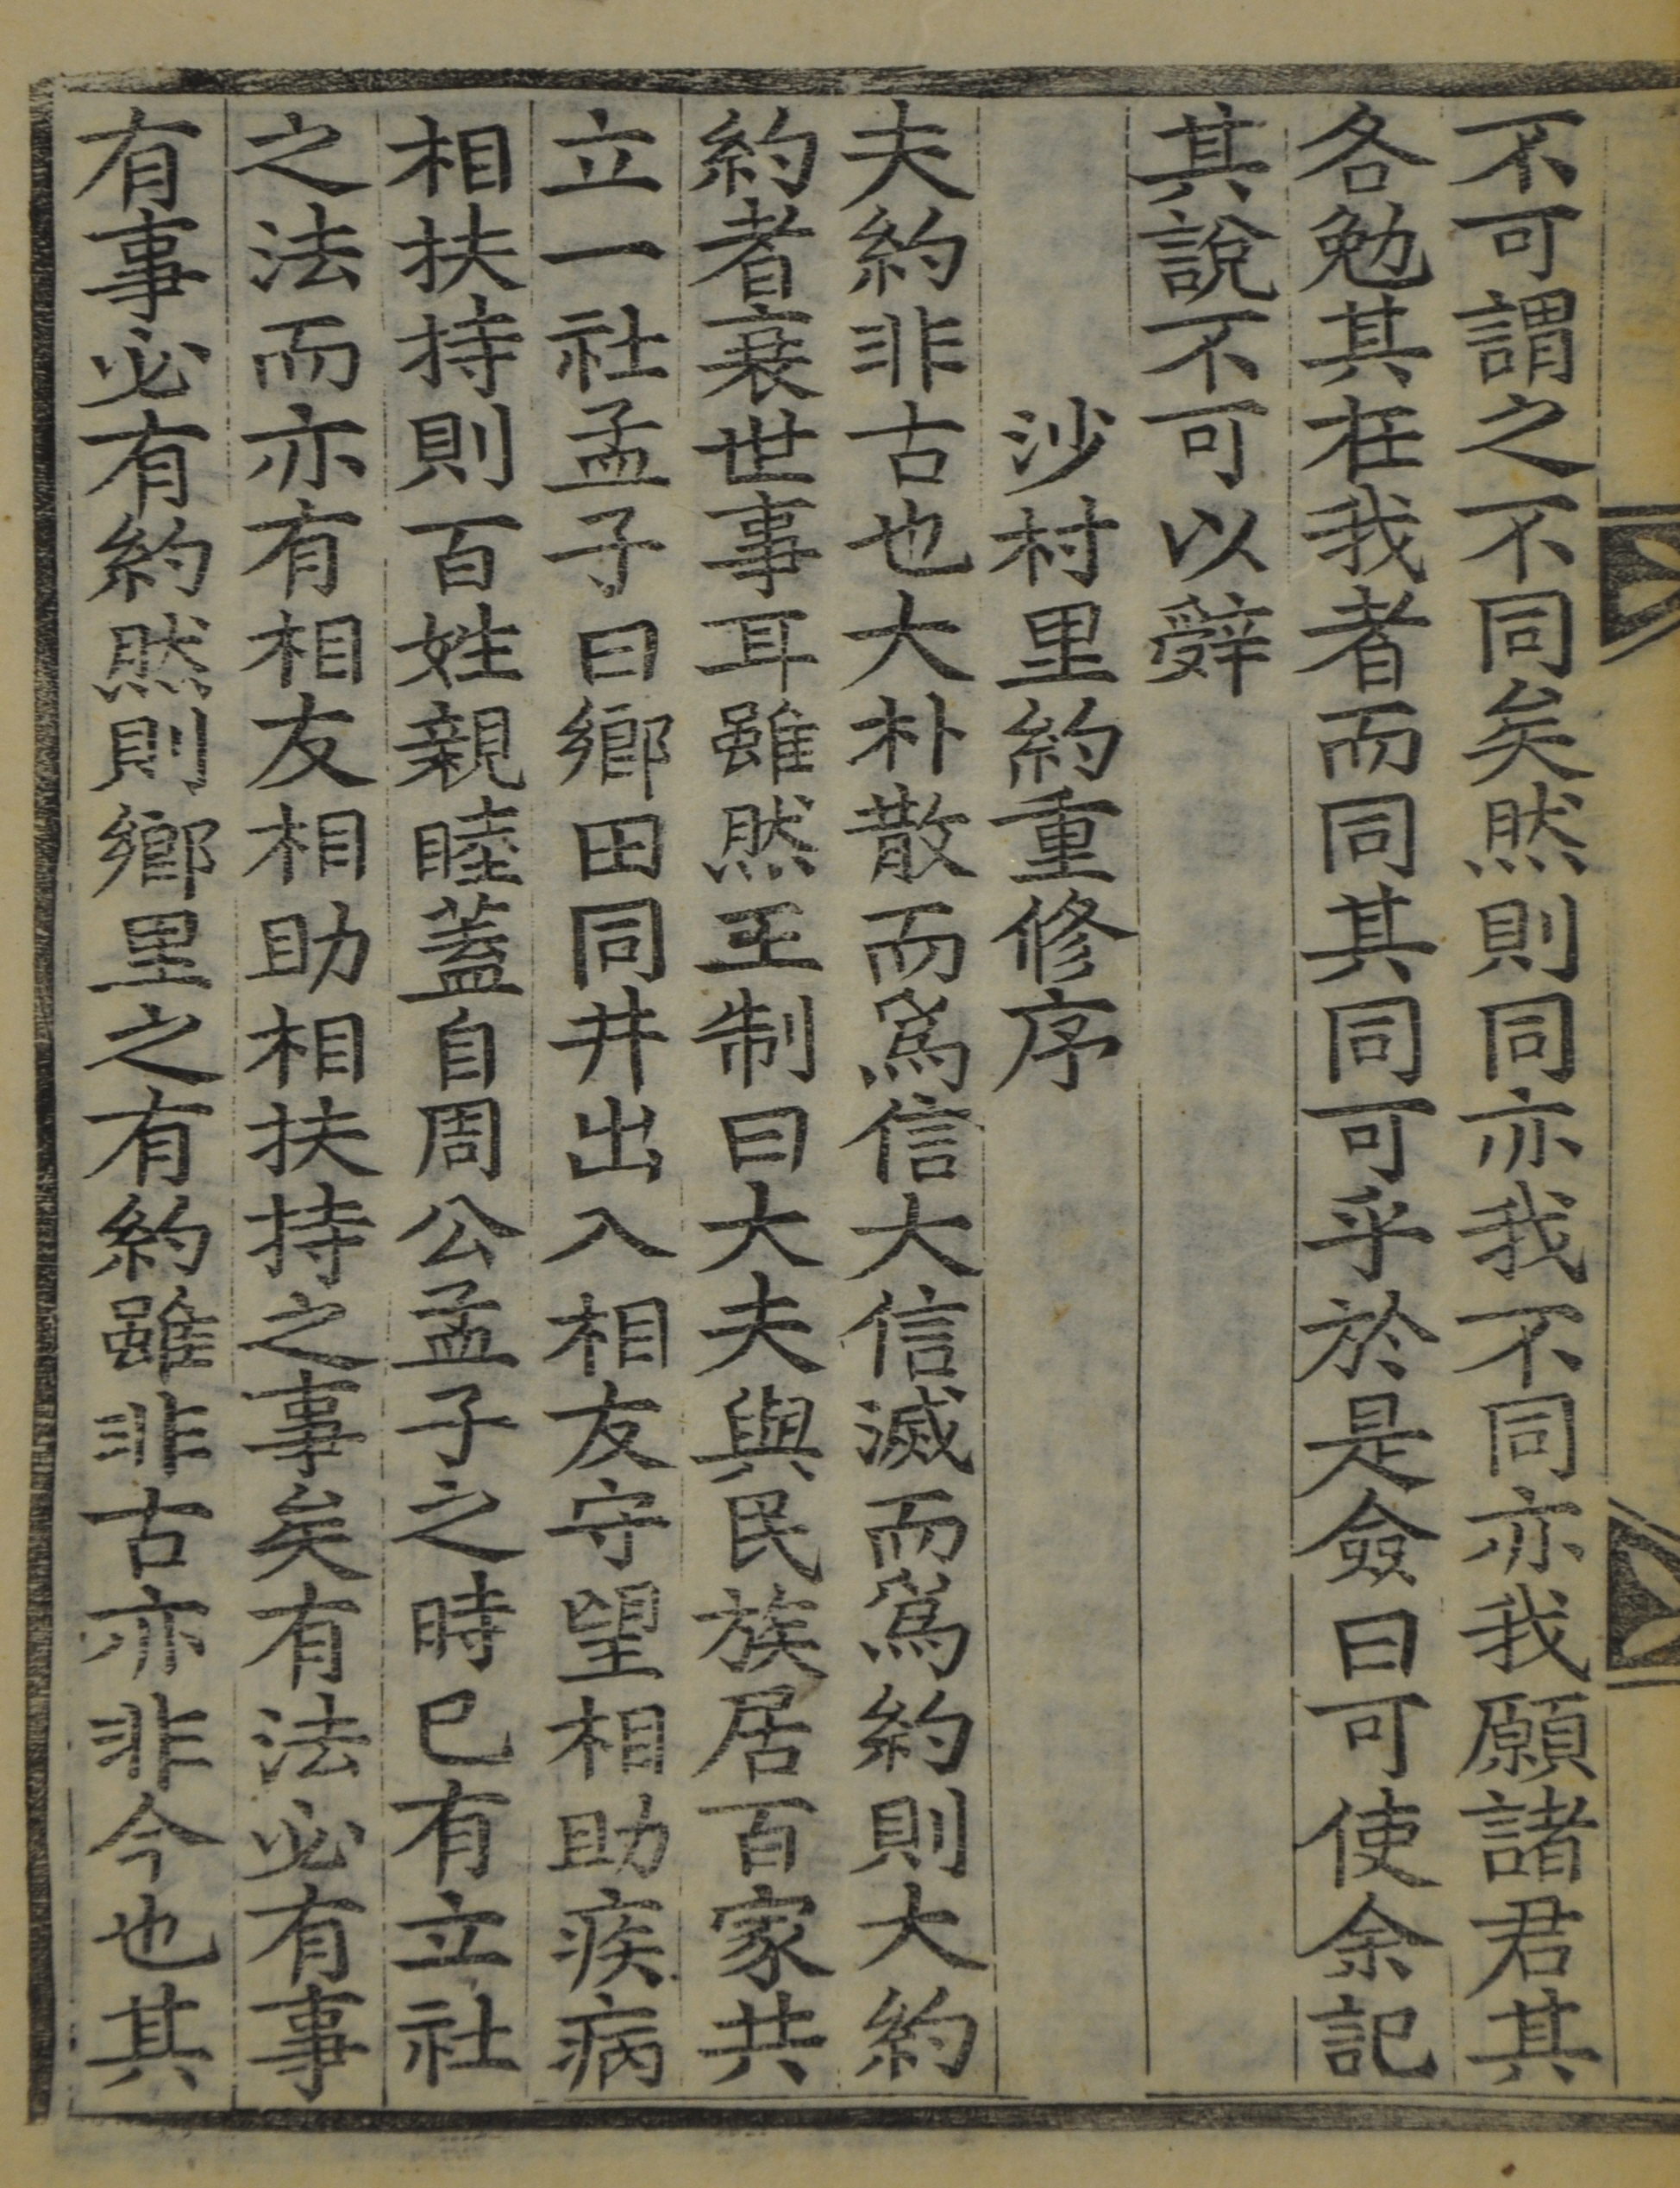 不可謂之不同矣然則同亦我不同亦我願諸君其
各勉其在我者而同其同可乎於是僉曰可使余記
其說不可以辭
沙村里約重修序
夫約非古也大朴散而爲信大信滅而爲約則大約
約者衰世事耳雖然王制曰大夫與民族居百家共
立一社孟子曰鄕田同井出入相友守望相助疾病
相扶持則百姓親睦蓋自周公孟子之時已有立社
之法而亦有相友相助相扶持之事矣有法必有事
有事必有約然則鄕里之有約雖非古亦非今也其